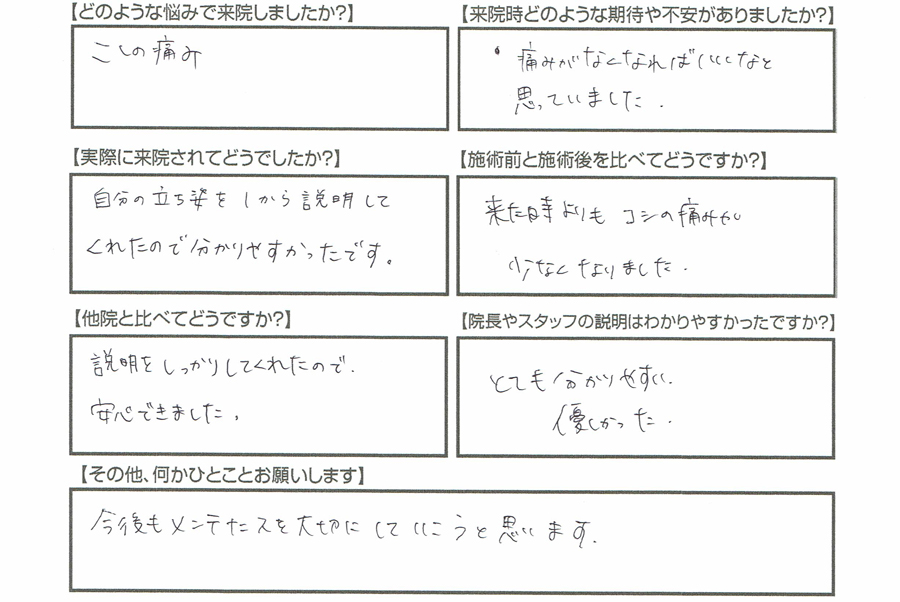 【どのような悩みで来院しましたか?】
こしの痛み
【来院時どのような期待や不安がありましたか?】
・痛みがなくなればいいなと
思っていました.
【実際に来院されてどうでしたか?】
自分の立ち姿をしから説明して
くれたので分かりやすかったです。
【施術前と施術後を比べてどうですか?】
来た時よりもコシの痛みが
少なくなりました.
【他院と比べてどうですか?】
説明をしっかりしてくれたので.
安心できました。
【院長やスタッフの説明はわかりやすかったですか?】
とても分かりやすい.
優しかった.
【その他、何かひとことお願いします】
今後もメンテナスを大切にしていこうと思います.